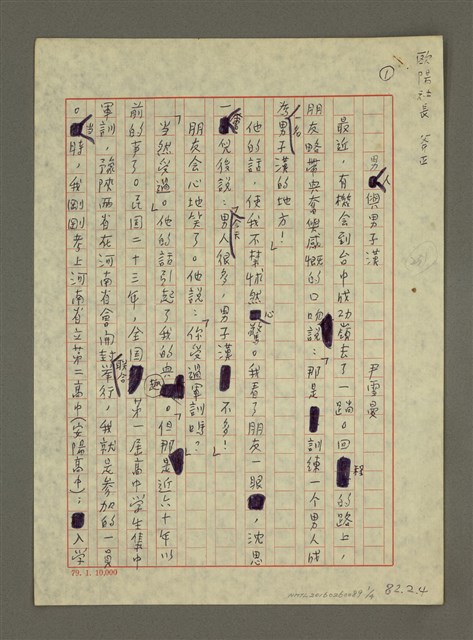 歐陽社長 答正
①
男人與男子漢
尹雪曼
最近,有機會到台中成功嶺去了一趟。回程的路上,
朋友略帶興奮與感慨的口吻說:「那是訓練一個男人成
為一名男子漢的地方!」
他的話,使我不禁悚然心驚。我看了朋友一眼,沈思
一會兒後說:「男人很多,男子漢不多!」
朋友會心地笑了。他說:「你受過軍訓嗎?」
「當然受過。」他的話引起了我的興趣。「但那是近六十年以
前的事了。民國二十三年,全國第一屆高中學生集中
軍訓,豫陝兩省在河南省會開封聯合舉行,我就是參加的一員
。當時,我剛剛考上河南省立第二高中(安陽高中);入學
79.1.10,000
1/6
82.2.4